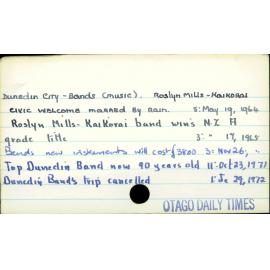 Dunedin City - Bands (music). Roslyn Mills - Kaikorai
Civic welcome marred by rain. S: May 19, 1964
Roslyn Mills - Kaikorai band wins N.Z. A
grade title 3: " 17, 1965
Bands new instruments will cost £3800 3: Nov 26, "
Top Dunedin Band now 90 years old 11: Oct 23, 1971
Dunedin Band's trip cancelled 1: Je 29, 1972
OTAGO DAILY TIMES